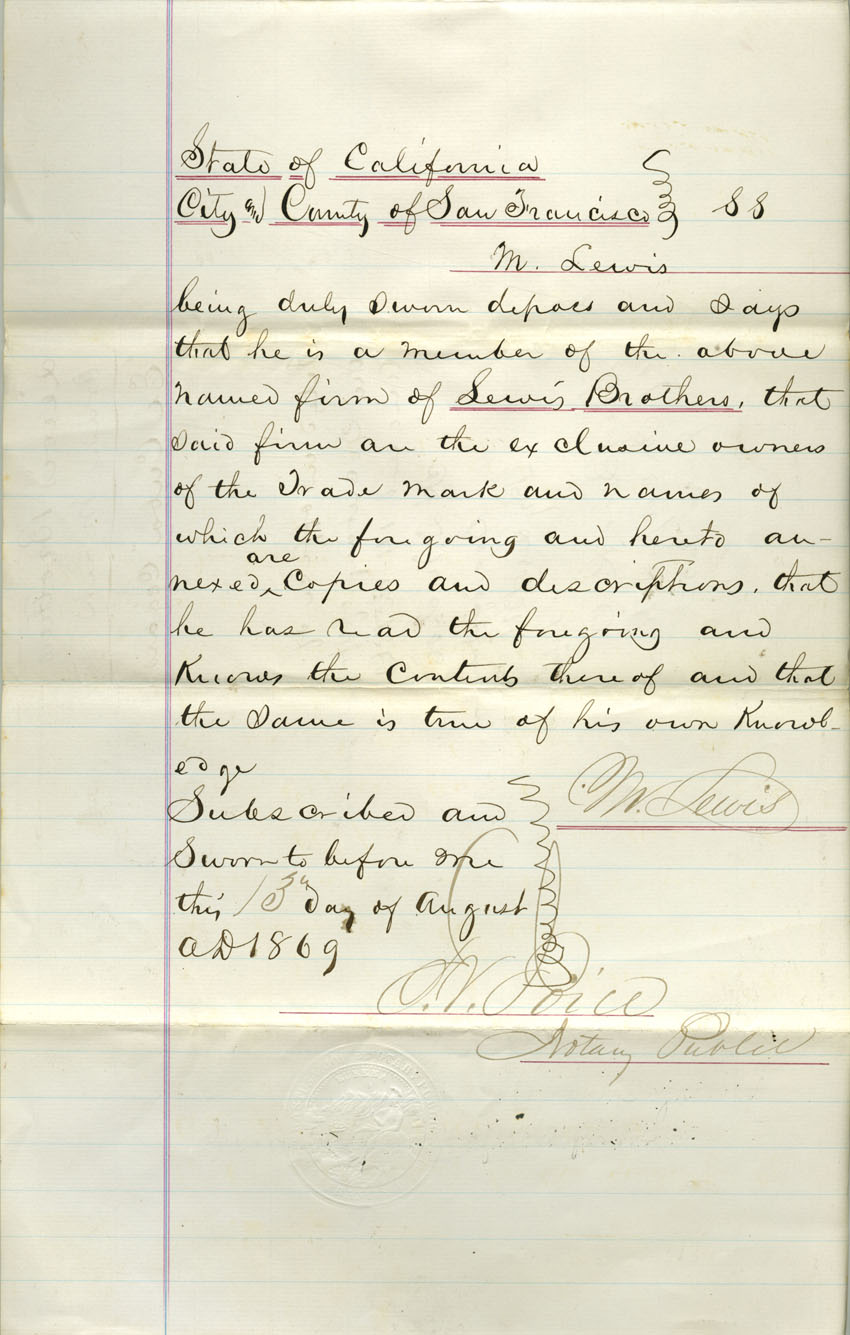 State of California
City and County of San Francisco } SS
M. Lewis
being duly sworn depoes and says
that he is a member of the above
named firm of Lewis Brothers, that
said firm are the exclusive owners
of the Trade mark and names of
which the foregoing and hereto an-
nexed are Copies and descriptions, that
he has read the foregoing and
Knows the Contents thereof and that
the same is true of his own Knowl-
edge
Subscribed and
M. Lewis
Sworn to before me
this 13th Day of August
AD 1869
Notary Public